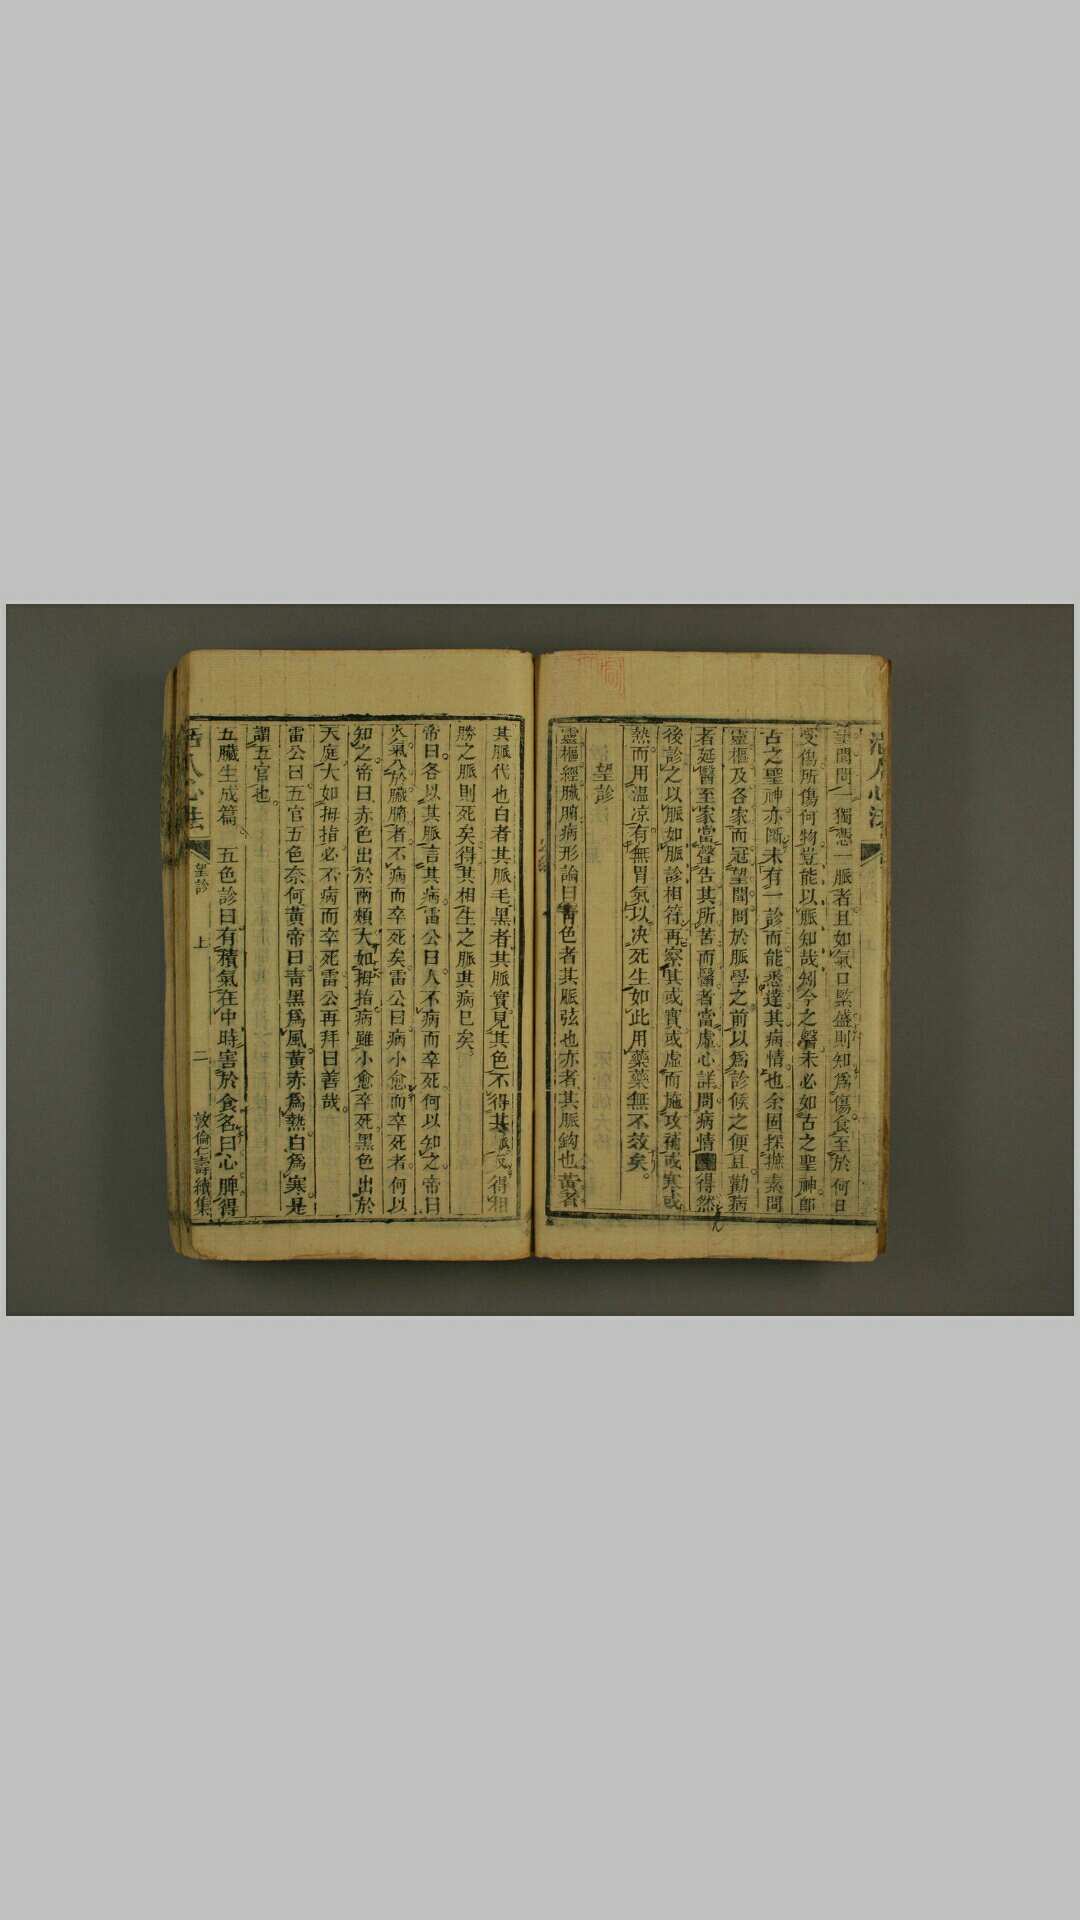 活人心法
望聞問一獨憑一脈者且如氣口緊盛則知爲傷食至於何日
受傷所傷何物豈能以脈知哉矧今之醫未必如古之聖神郎
古之聖神亦斷未有一診而能悉達其病情也余固採摭素問
靈樞及各家而冠望聞問於脈學之前以爲診候之便且勸病
者延醫至家當聲告其所苦而醫者當虛心詳問病情得然
後診之以脈如脈診相符再察其或實或虛而施攻補或寒或
熱而用溫凉有無胃氣以决死生如此用藥藥無不效矣
望診
靈樞經臟腑病形論曰青色者其脈弦也赤者其脈鈎也黃者
其脈代也白者其脈毛黑者其脈實見其色不得其脈反得相
勝之脈則死矣得其相生之脈其病已矣
帝曰各以其脈言其病雷公曰人不病而卒死何以知之帝曰
大氣入於臟腑者不病而卒死矣雷公曰病小愈而卒死者何以
知之帝曰赤色出於兩頰大如拇指病雖小愈卒死黑色出於
天庭大如拇指必不病而卒死雷公再拜曰善哉
雷公曰五官五色奈何黃帝曰青黑爲風黃赤爲熱白爲寒是
謂五官也
五臟生成篇 五色診曰有積氣在中時害於食名曰心脾得
活人心法 望診 上 二 敦倫仁壽續集